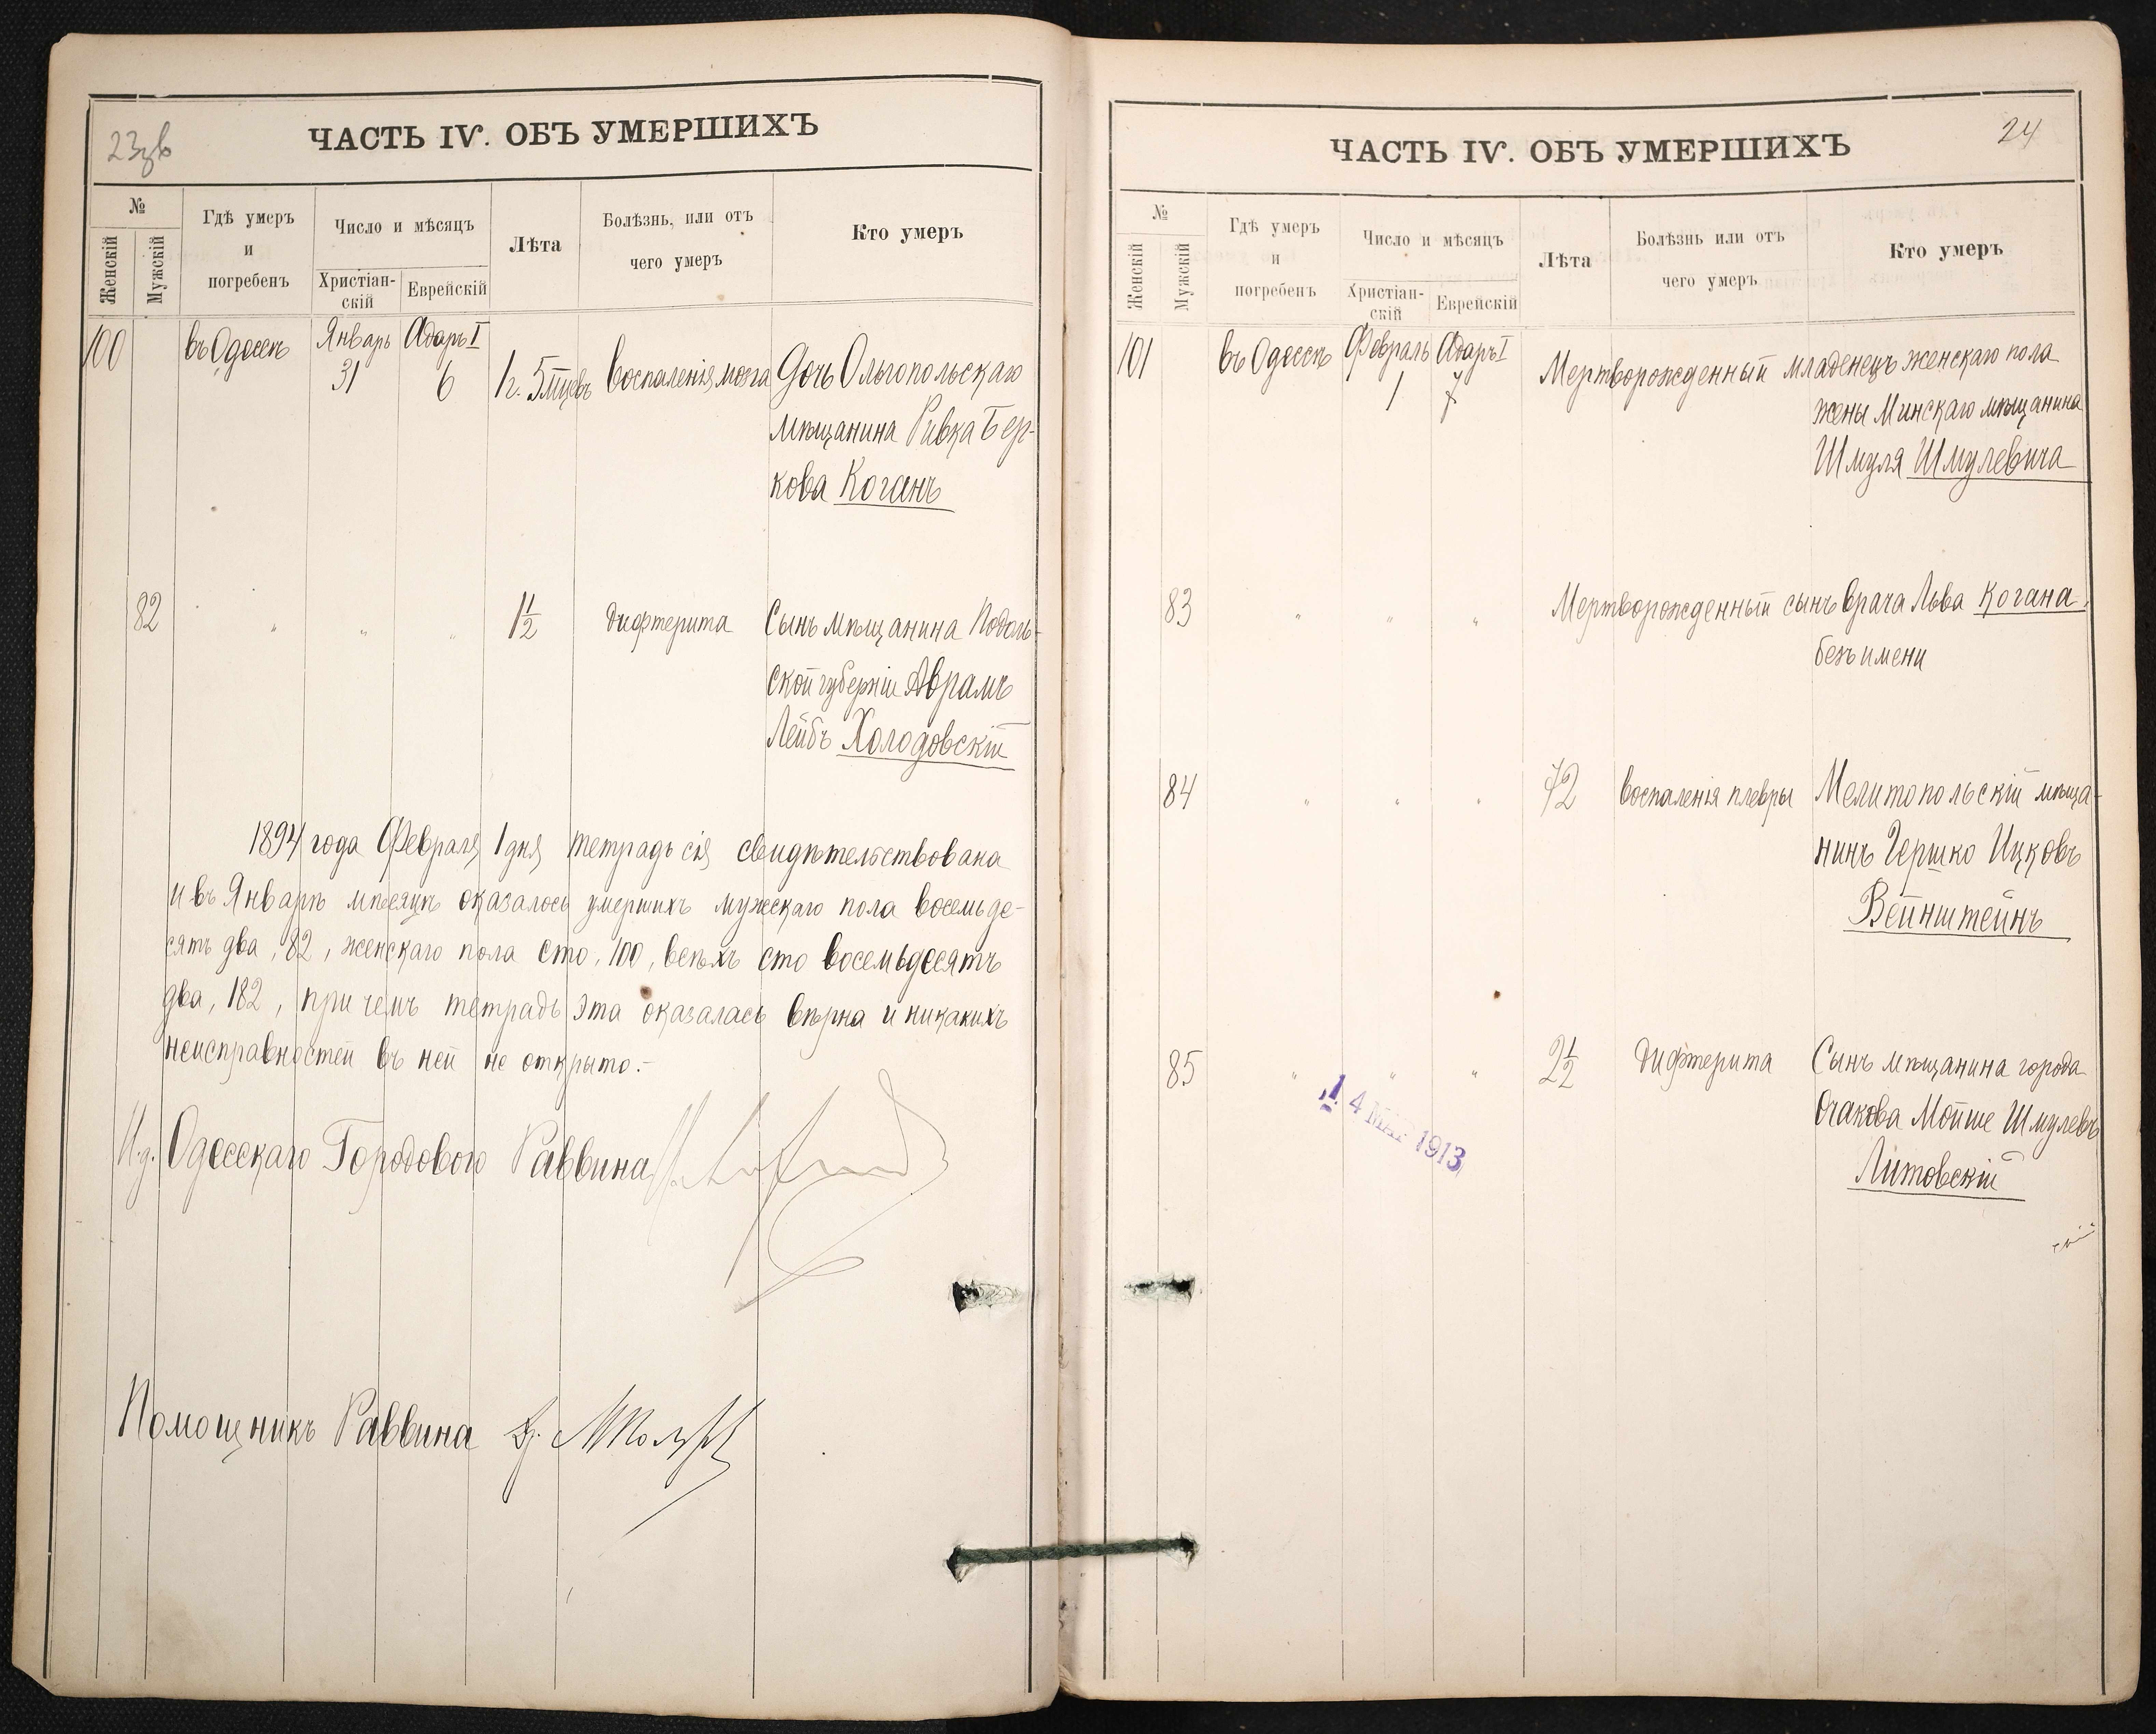 23зв
ЧАСТЬ IV. ОБЪ УМЕРШИХЪ
№
Женскій
Мужскій
Гдѣ умеръ
и
погребенъ
Число и мѣсяцъ
Христіан-
скій
Еврейскій
Лѣта
Болѣзнь, или отъ
чего умеръ
Кто умеръ
100 въ Одессѣ Январь 31 Адаръ I 6 1 г. 5 мцевъ воспаленія мозга Дочь Ольгопольскаго
мѣщанина Ривка Бер-
кова Коганъ
82 " " " 1 1/2 дифтерита Сынъ мѣщанина Подоль-
ской губерніи Аврамъ
Лейбъ Холодовскій
1894 года Февраля 1 дня тетрадь сія свидѣтельствована
и въ Январѣ мѣсяцѣ оказалось умершихъ мужескаго пола восемьде-
сятъ два, 82, женскаго пола сто, 100, всѣхъ сто восемьдесятъ
два, 182, при чемъ тетрадь эта оказалась вѣрна и никакихъ
неисправностей въ ней не открыто.-
И.д. Одесскаго Городового Раввина
Помощникъ Раввина
24
ЧАСТЬ IV. ОБЪ УМЕРШИХЪ
№
Женскій
Мужскій
Гдѣ умеръ
и
погребенъ
Число и мѣсяцъ
Христіан-
скій
Еврейскій
Лѣта
Болѣзнь или отъ
чего умеръ
Кто умеръ
101 въ Одессѣ Февраль 1 Адаръ I 7 Мертворожденный младенецъ женскаго пола
жены Минскаго мѣщанина
Шмуля Шмулевича
83 " " " Мертворожденный сынъ врача Льва Когана,
безъ имени
84 " " " 72 воспаленія плевры Мелитопольскій мѣща-
нинъ Гершко Ицковъ
Вейнштейнъ
85 " " " 2 1/2 дифтерита Сынъ мѣщанина города
Очакова Мойше Шмулевъ
Литовскій
4 МАР 1913